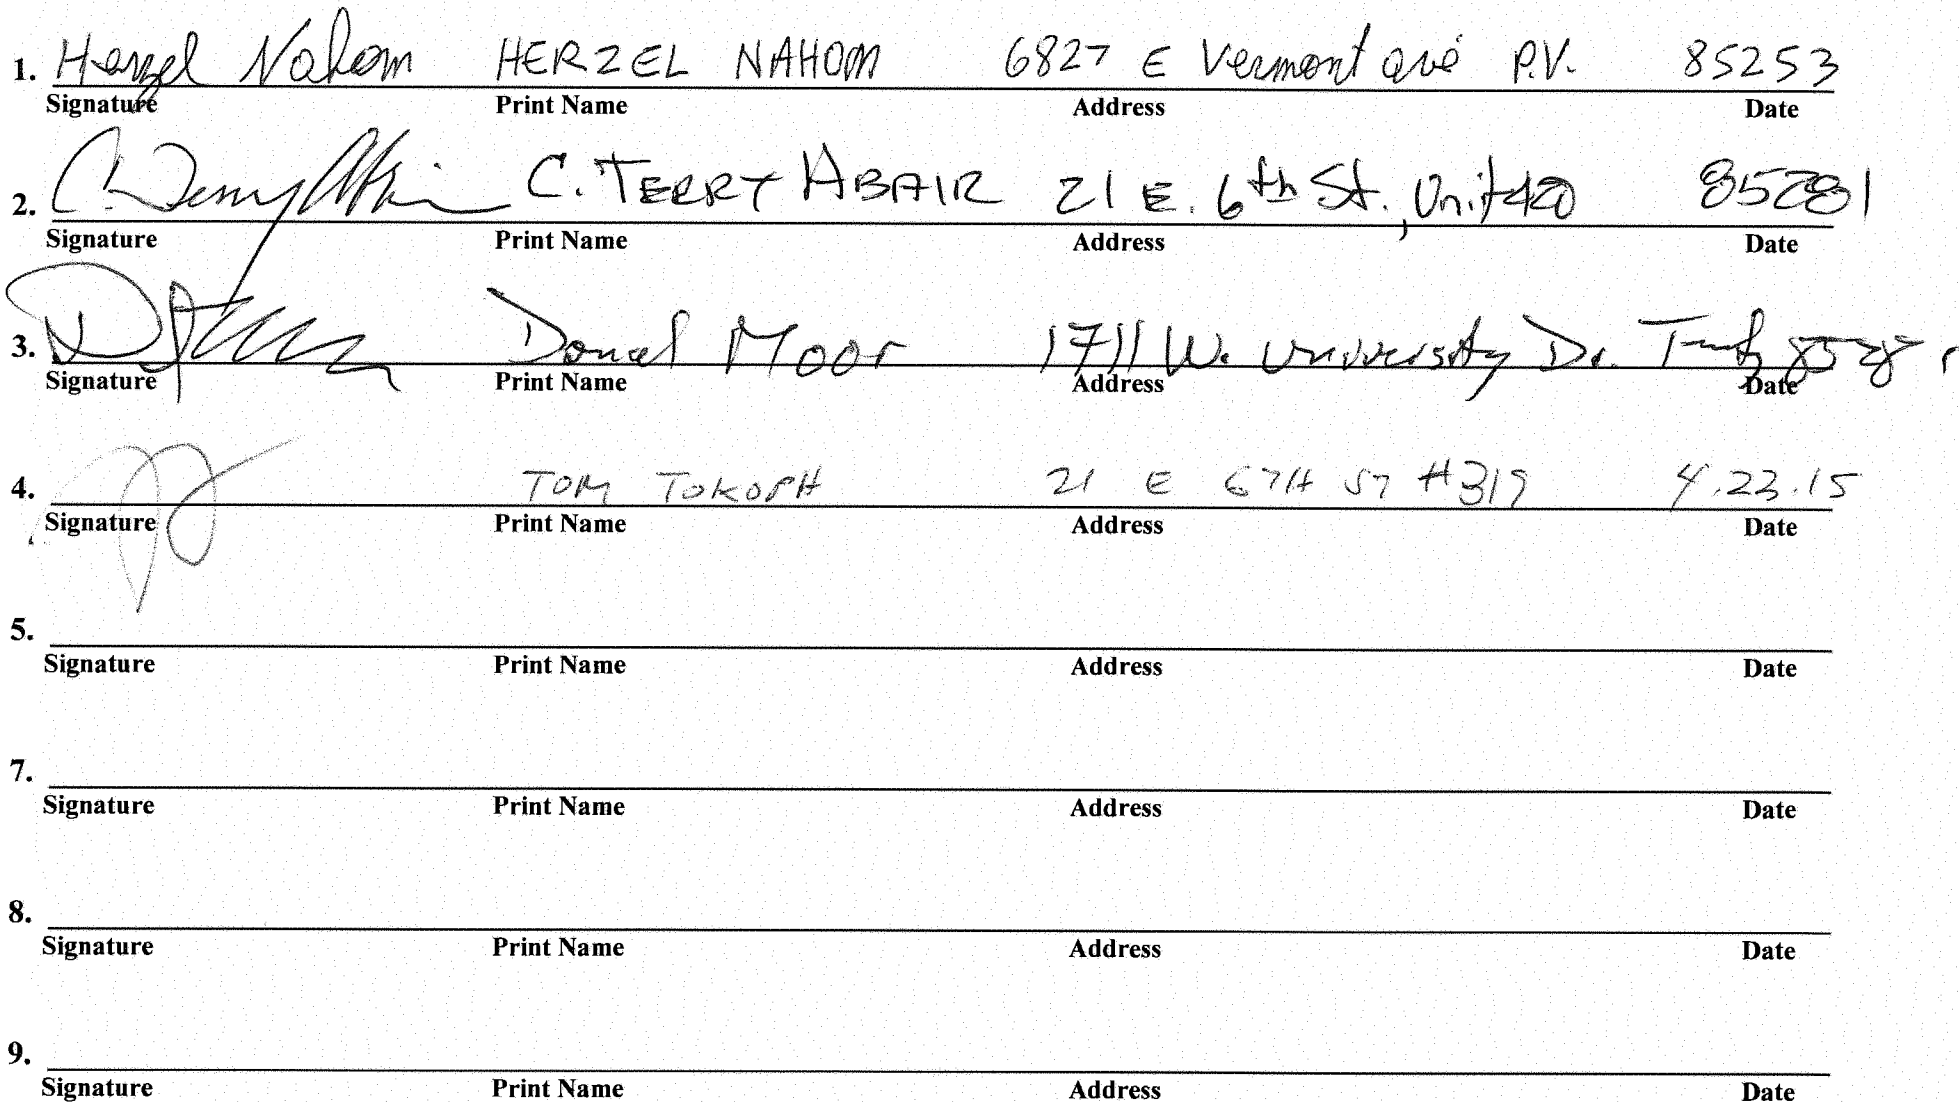 1. Herzel Nahom HERZEL NAHOM 6827 E Vermont ave P.V. 85253
Signature Print Name Address Date
2. C. TERRY ABAIR 21 E. 6th St., Unit 420 85281
Signature Print Name Address Date
3. Moor 1711 W. University Dr.
Signature Print Name Address Date
4. TOM TOKOPH 21 E 6TH ST #319 4.23.15
Signature Print Name Address Date
5.
Signature Print Name Address Date
7.
Signature Print Name Address Date
8.
Signature Print Name Address Date
9.
Signature Print Name Address Date